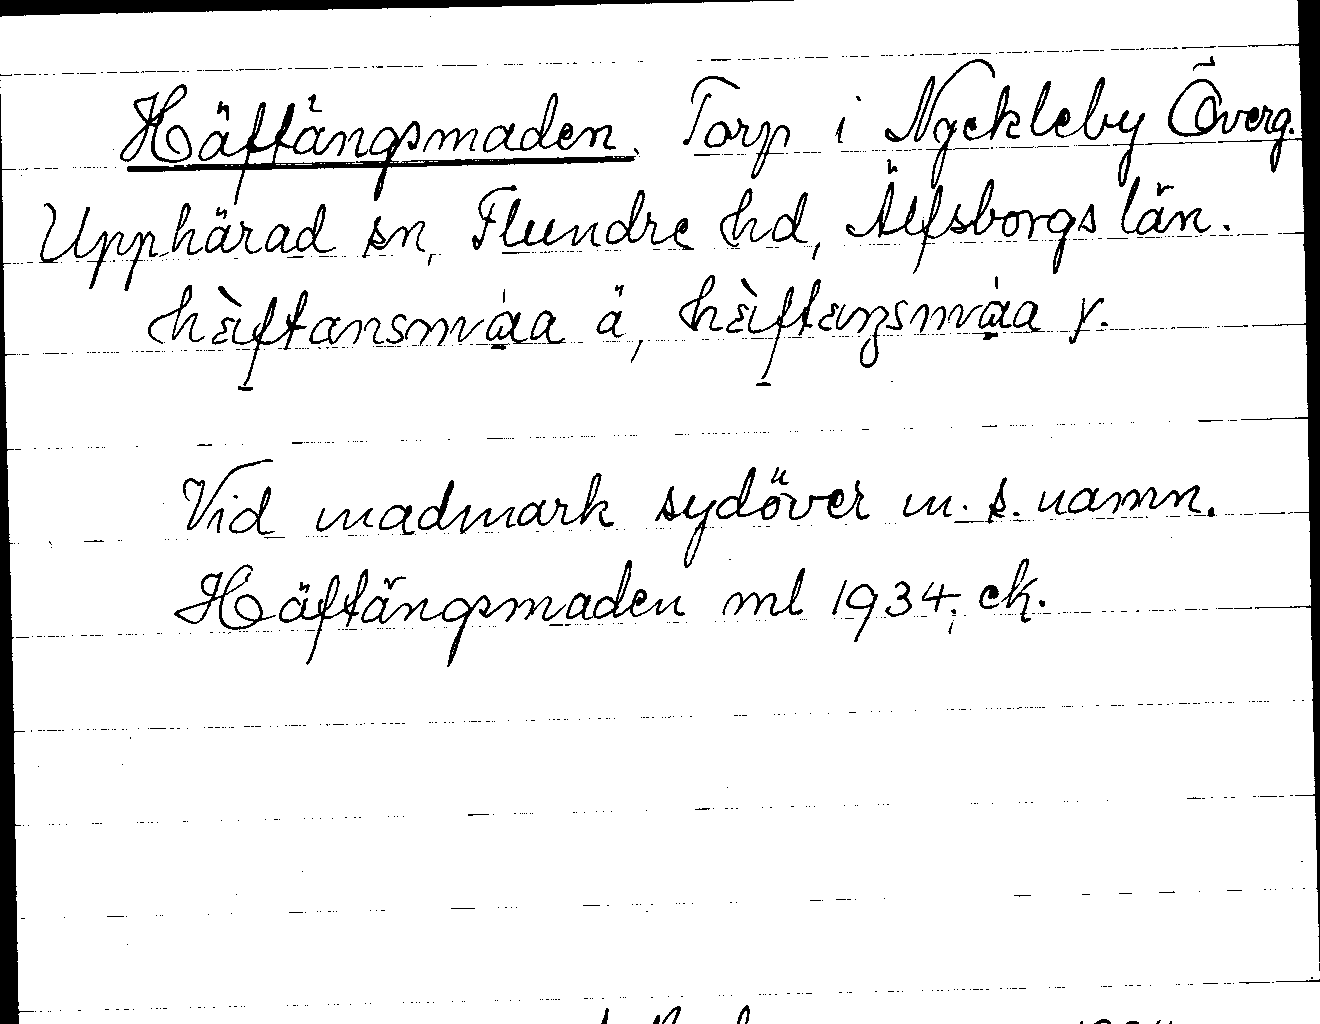 Häftängsmaden. Torp i Nyckleby Överg.
Upphärad sn, Flundre hd, Älfsborgs län.
hä̀ftansmáa ä, hä̀ftaŋsmáa y.
Vid madmark sydöver m. s. namn.
Häftängsmaden ml 1934; ek.